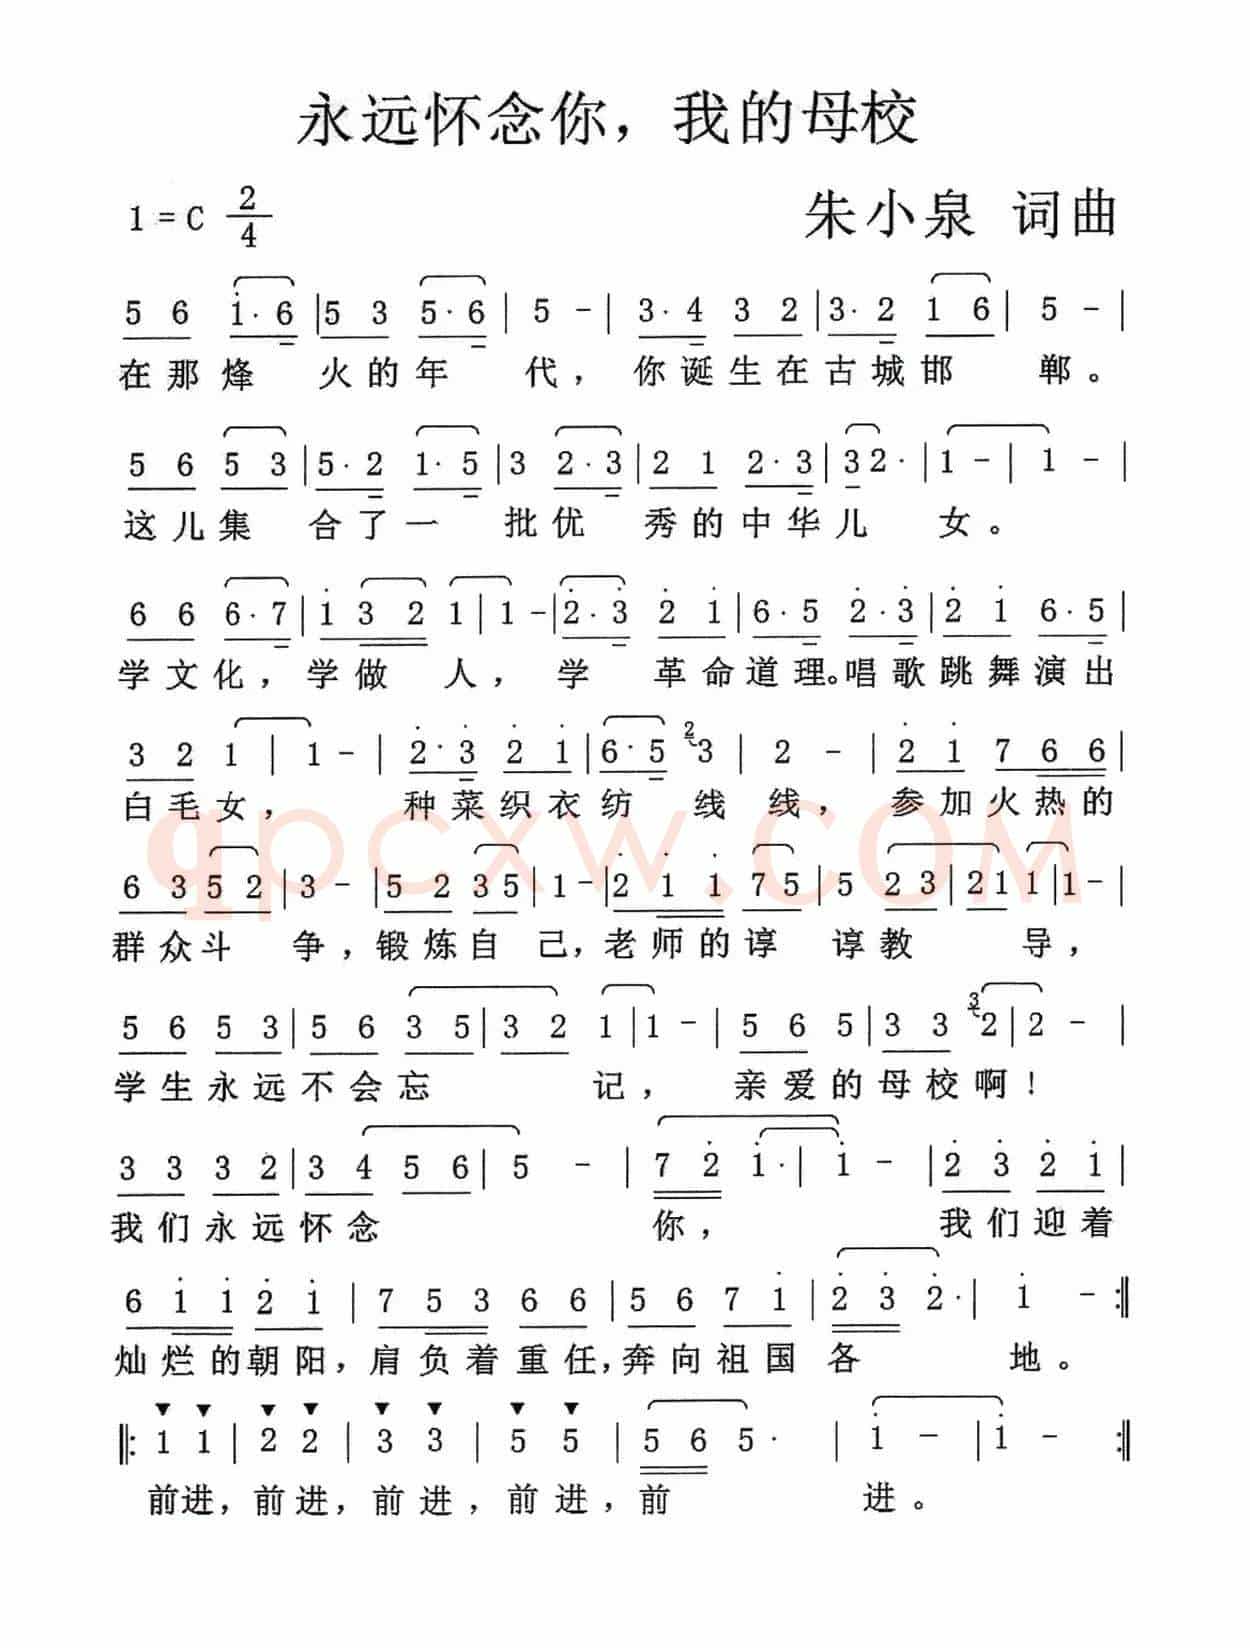 永远怀念你，我的母校
1=C 2/4 朱小泉 词曲
5 6 i·6 | 5 3 5·6 | 5 - | 3·4 3 2 | 3·2 1 6 | 5 - |
在那烽 火的年 代，你诞生在古城邯 郸。
5 6 5 3 | 5·2 1·5 | 3 2·3 | 2 1 2·3 | 3 2· | 1 - | 1 - |
这儿集 合了一 批优 秀的中华儿 女。
6 6 6·7 | i 3 2 1 | 1 - | 2·3 2 i | 6·5 2·3 | 2 i 6·5 |
学文化，学做 人，学 革命道理。唱歌跳舞演出
3 2 1 | 1 - | 2·3 2 i | 6·5 2 3 | 2 - | 2 i 7 6 6 |
白毛女，种菜织衣纺 线线，参加火热的
6 3 5 2 | 3 - | 5 2 3 5 | 1 - | 2 i i 7 5 | 5 2 3 | 2 1 1 | 1 - |
群众斗 争，锻炼自 己，老师的谆 谆教 导，
5 6 5 3 | 5 6 3 5 | 3 2 1 | 1 - | 5 6 5 | 3 3 3 2 | 2 - |
学生永远不会忘 记，亲爱的母校啊！
3 3 3 2 | 3 4 5 6 | 5 - | 7 2 i· | i - | 2 3 2 i |
我们永远怀念 你，我们迎着
6 i i 2 i | 7 5 3 6 6 | 5 6 7 i | 2 3 2· | i - :‖
灿烂的朝阳，肩负着重任，奔向祖国各 地。
‖: 1 1 | 2 2 | 3 3 | 5 5 | 5 6 5· | i - | i - :‖
前进，前进，前进，前进，前 进。
qpcxw.com